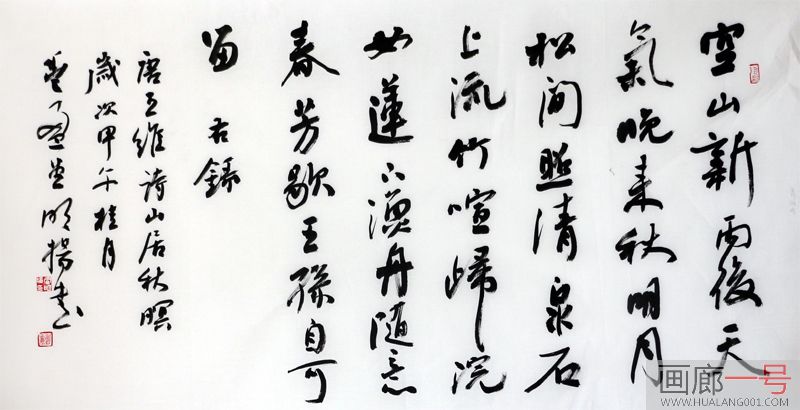 空山新雨後天
氣晚来秋明月
松间照清泉石
上流竹喧歸浣
女蓮下漁舟隨意
春芳歇王孫自可
留 右錄
唐王維詩山居秋暝
歲次甲午桂月
明揚书
画廊一号
WWW.HUALANG001.COM